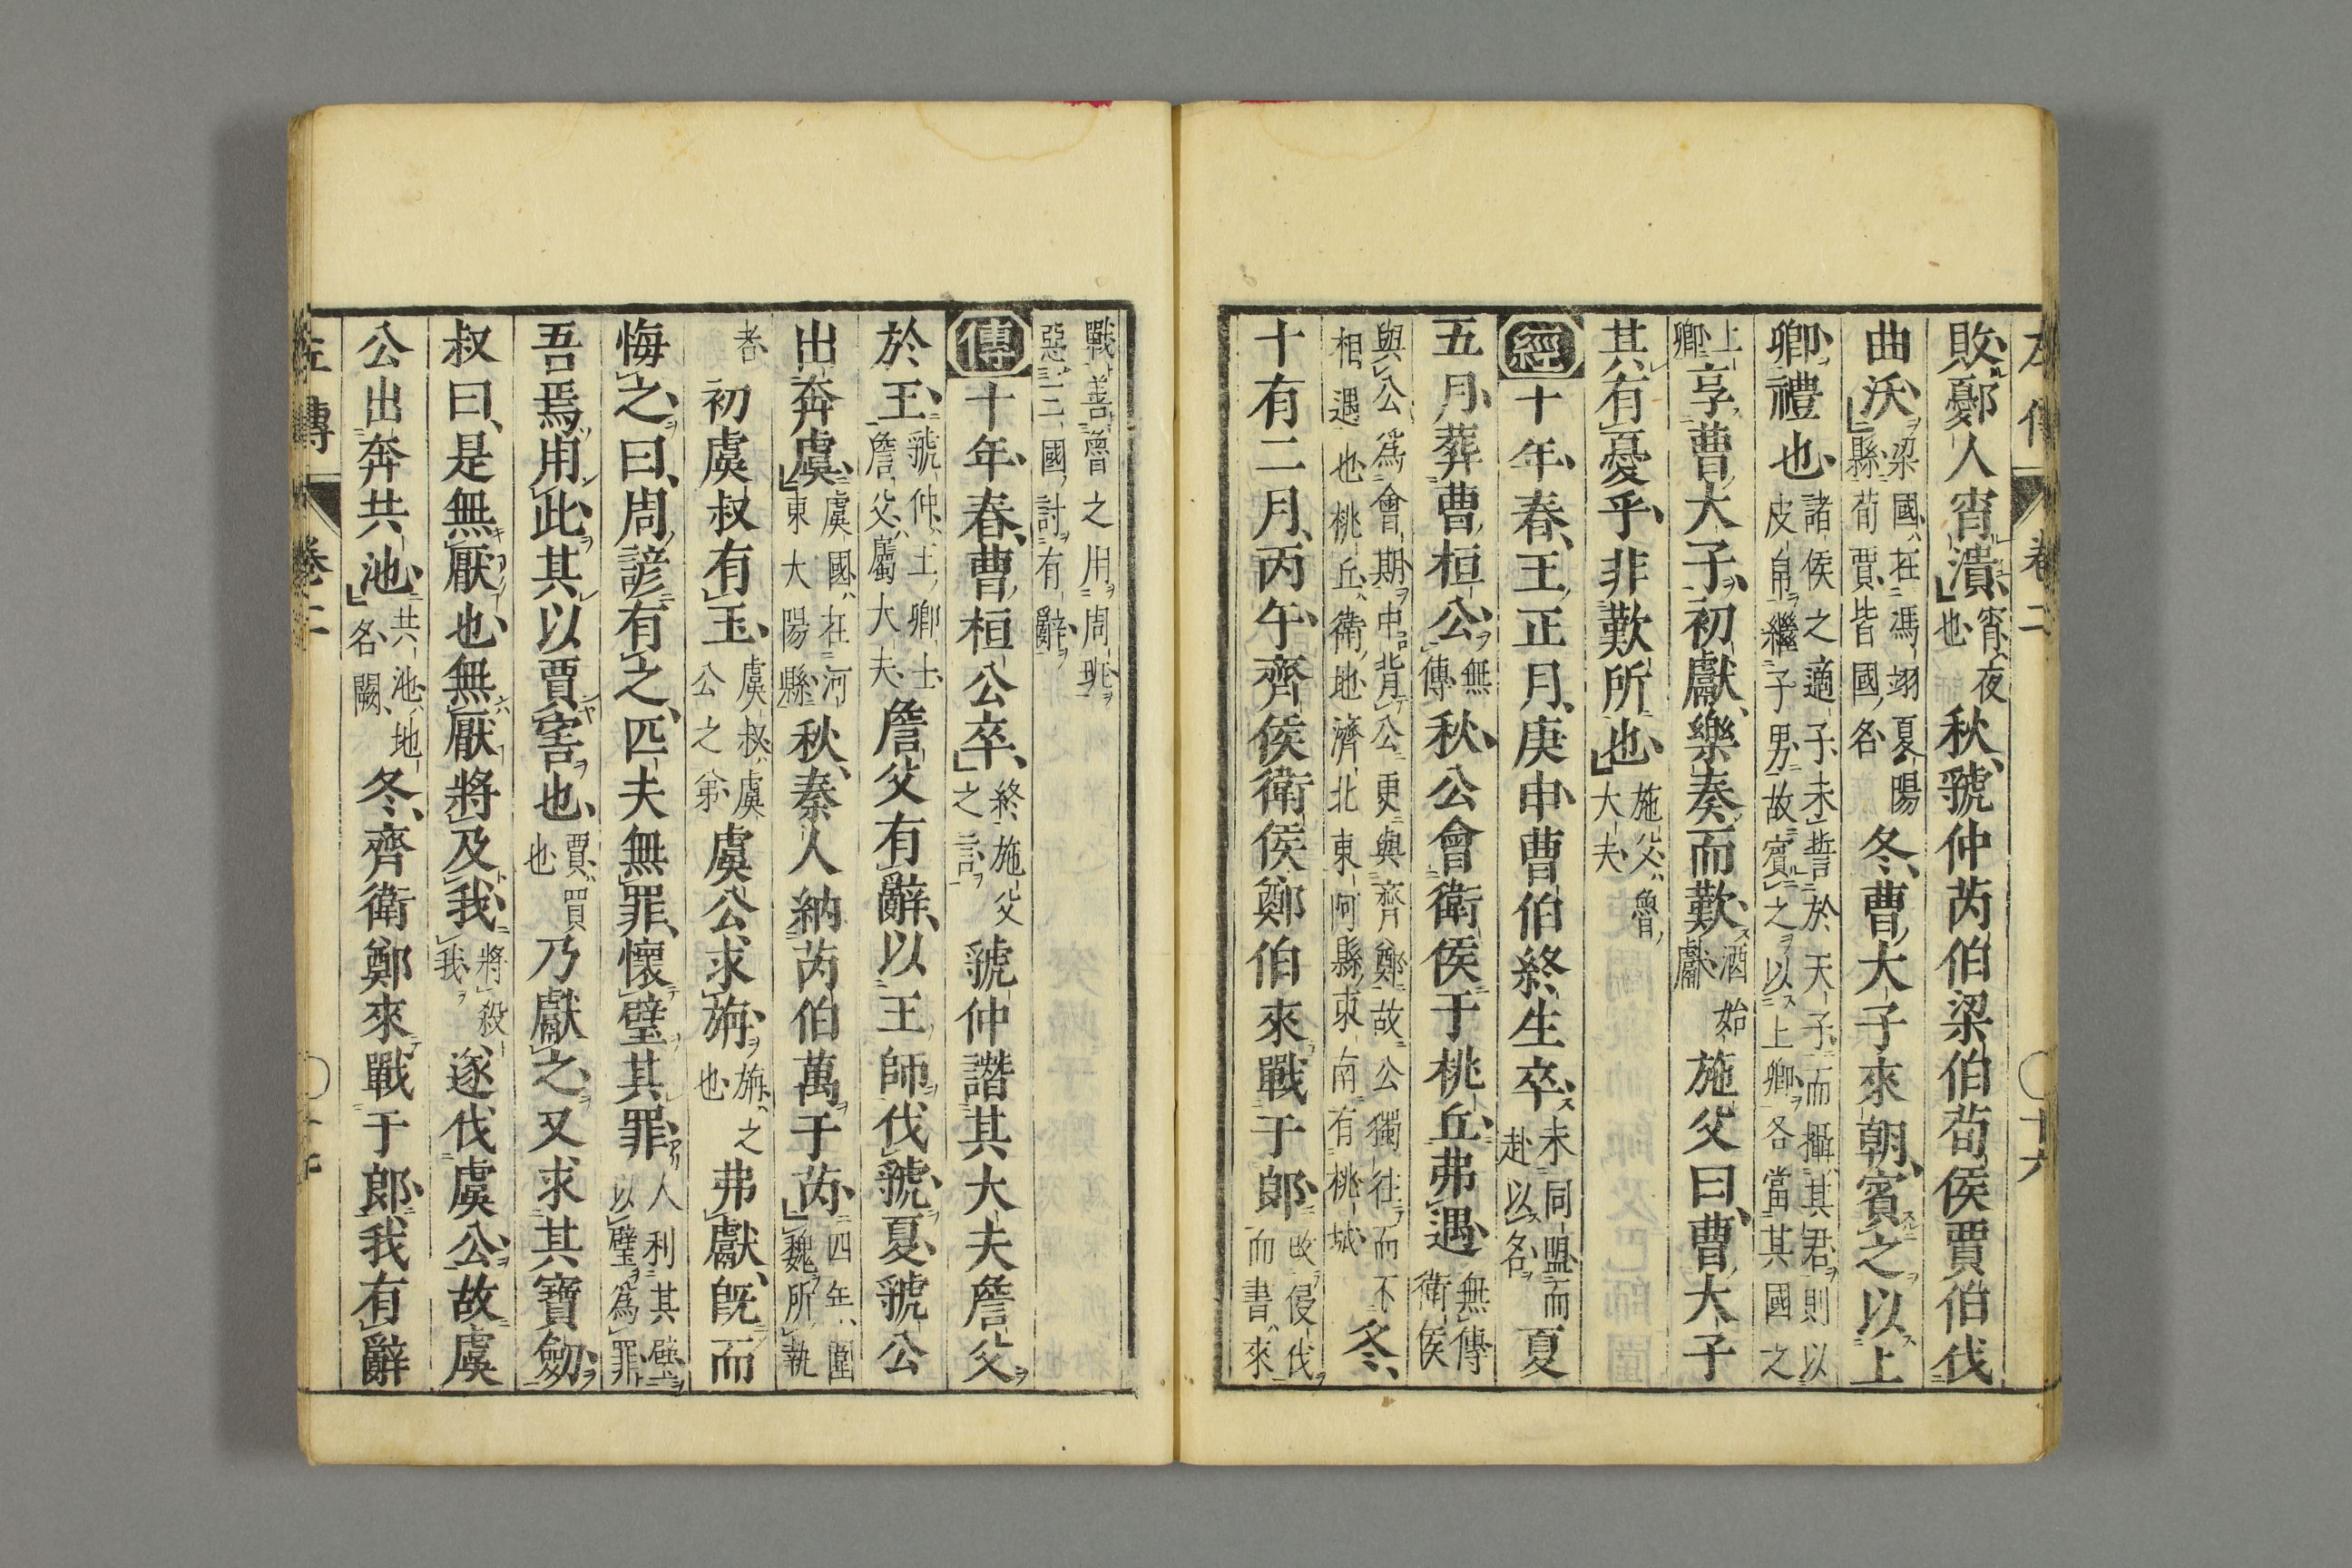 左傳 卷二 十六
敗鄾人宵潰宵夜也秋虢仲芮伯梁伯荀侯賈伯伐
曲沃梁國在馮翊夏陽縣荀賈皆國名冬曹大子來朝賓之以上
卿禮也諸侯之適子未誓於天子而攝其君則以皮帛繼子男故賓之以上卿各當其國之
上卿享曹大子初獻樂奏而歎酒始獻施父曰曹大子
其有憂乎非歎所也施父魯大夫
經十年春王正月庚申曹伯終生卒未同盟而赴以名夏
五月葬曹桓公無傳秋公會衛侯于桃丘弗遇無傳衛侯
與公爲會期中背公更與齊鄭故公獨往而不相遇也桃丘衛地濟北東阿縣東南有桃城冬
十有二月丙午齊侯衛侯鄭伯來戰于郎改侵伐而書來
戰善魯之用周班惡三國討有辭
傳十年春曹桓公卒終施父之言虢仲譖其大夫詹父
於王虢仲王卿士詹父屬大夫詹父有辭以王師伐虢夏虢公
出奔虞虞國在河東大陽縣秋秦人納芮伯萬于芮四年圍魏所執
者初虞叔有玉虞叔虞公之弟虞公求旃旃之也弗獻既而
悔之曰周諺有之匹夫無罪懷璧其罪人利其璧以璧爲罪
吾焉用此其以賈害也賈買也乃獻之又求其寶劒
叔曰是無厭也無厭將及我將殺我遂伐虞公故虞
公出奔共池共池地名闕冬齊衛鄭來戰于郎我有辭
左傳 卷二